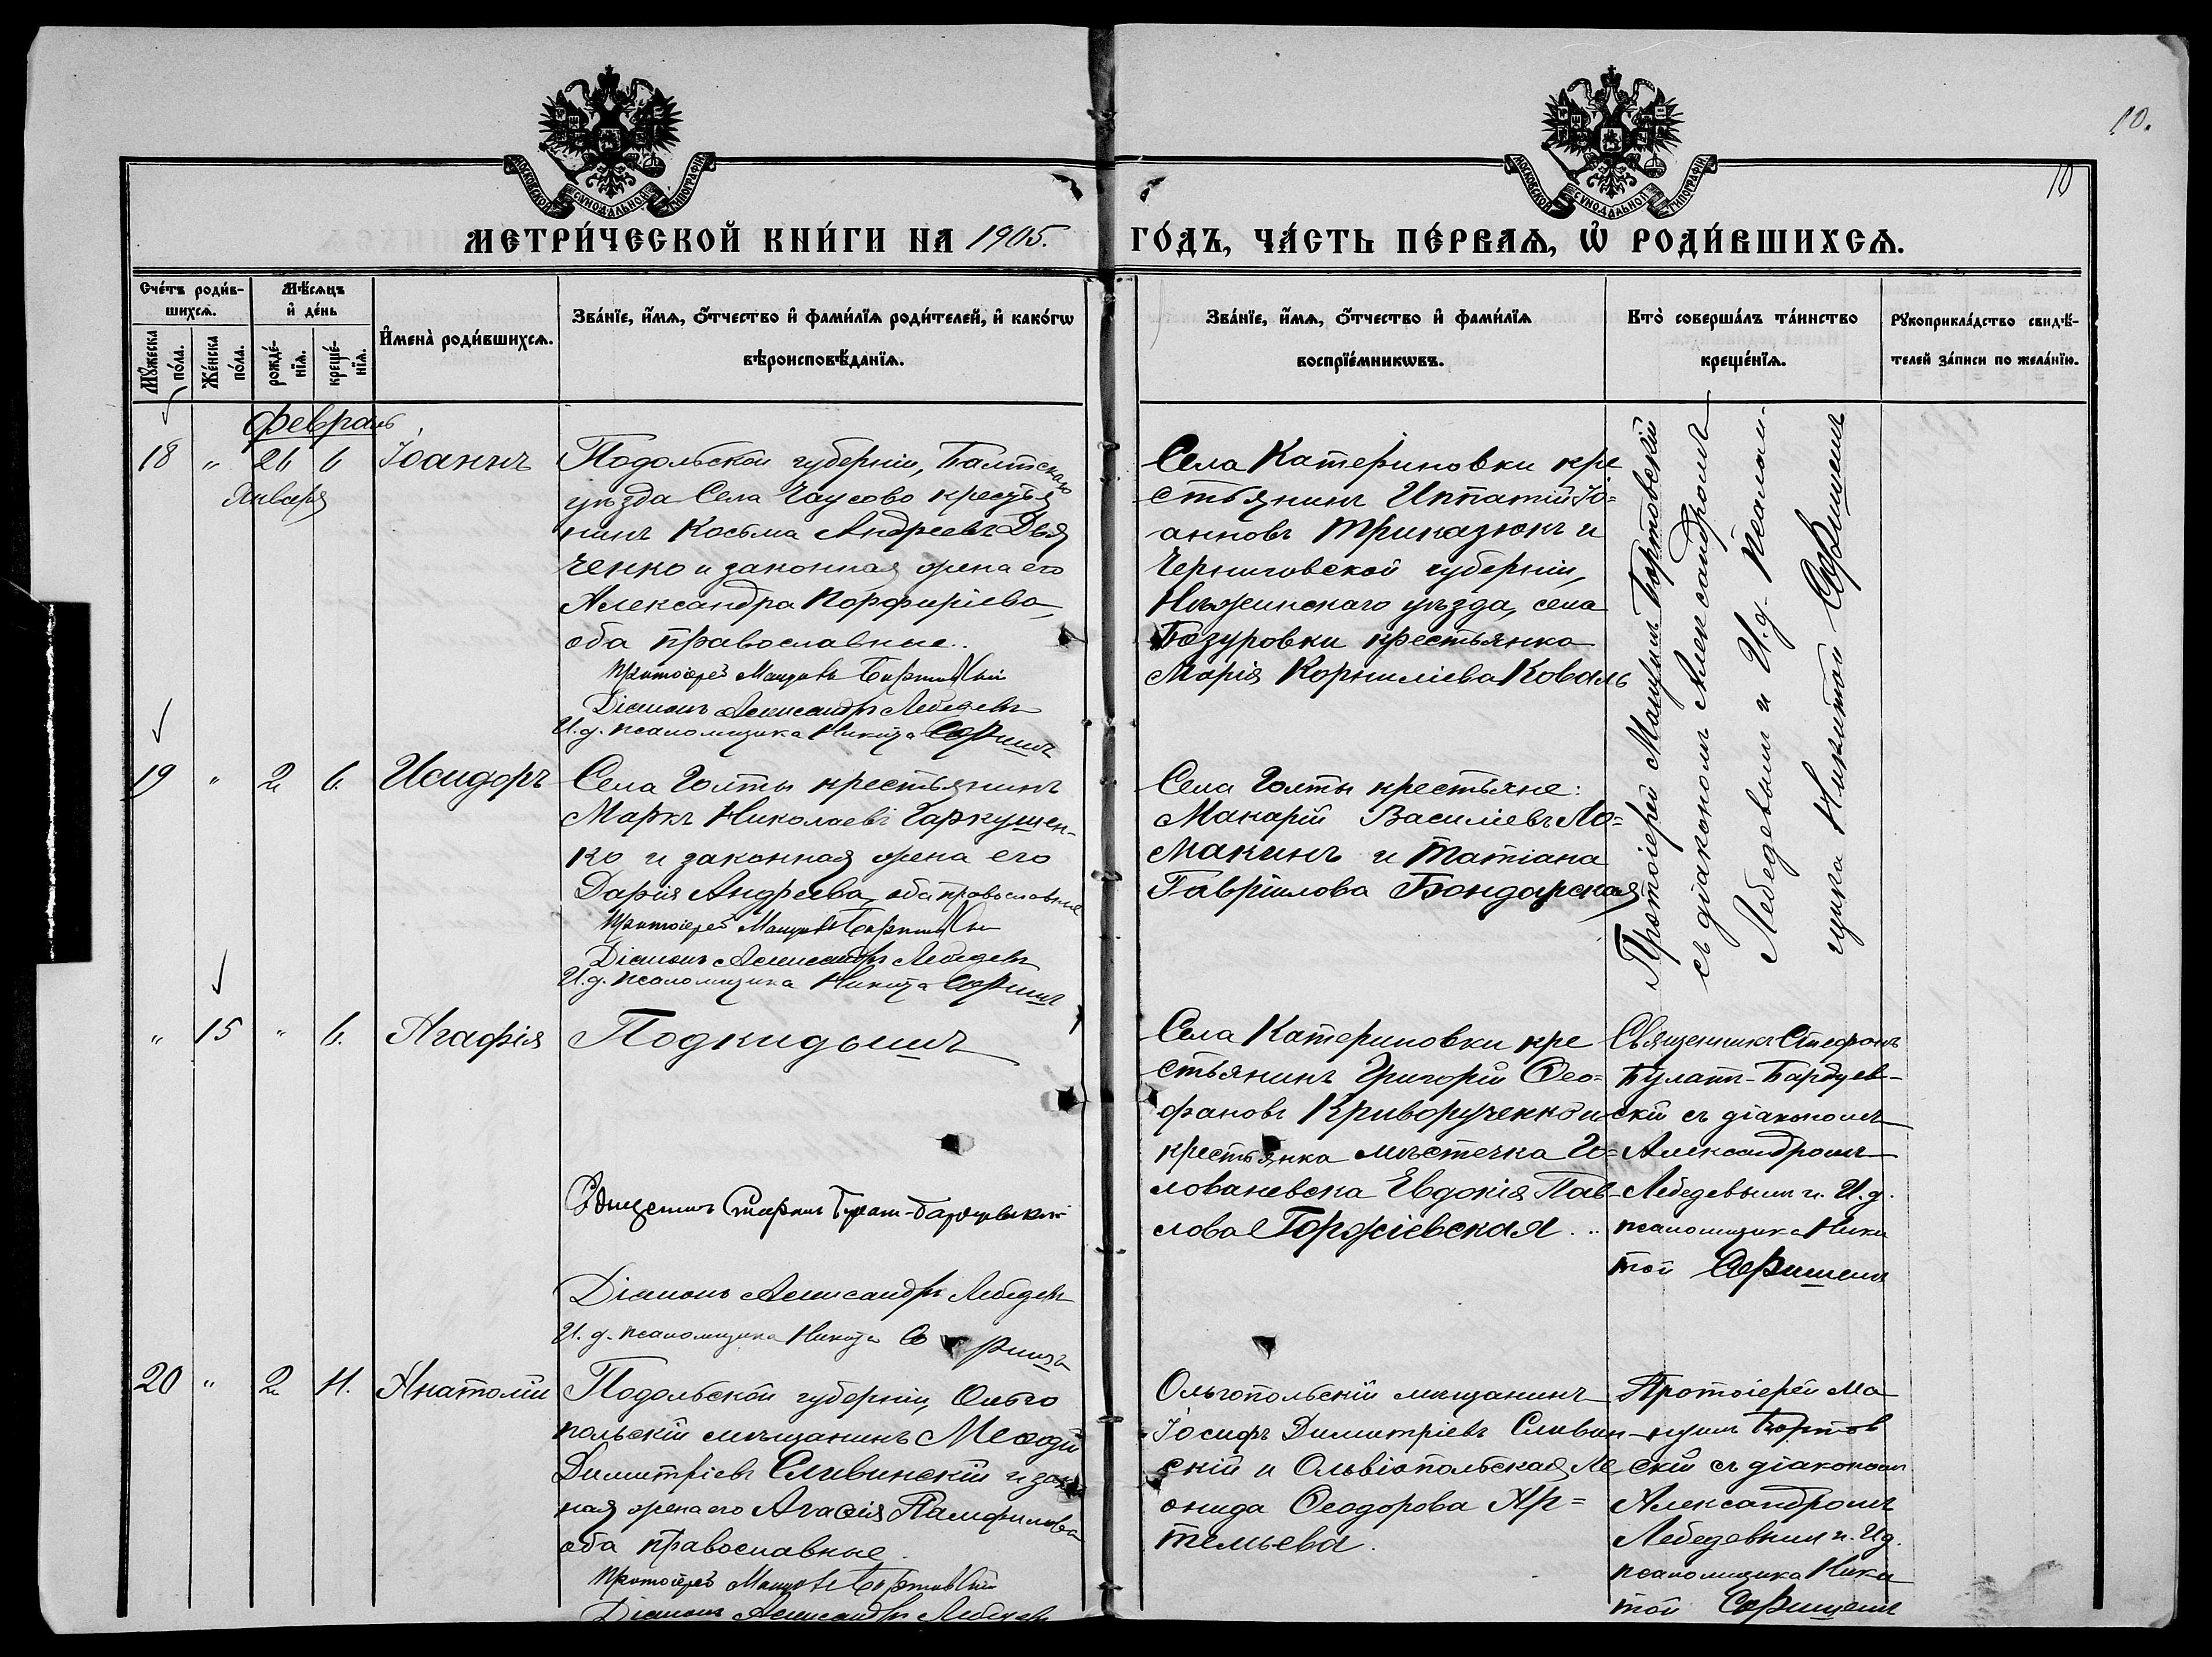 10.
10
МОСКОВСКОЙ СѴНОДАЛЬНОЙ ТИПОГРАФІИ
МОСКОВСКОЙ СѴНОДАЛЬНОЙ ТИПОГРАФІИ
МЕТРИ́ЧЕСКОЙ КНИ́ГИ НА 1905. ГО́ДЪ, ЧА́СТЬ ПЕ́РВАѦ, Ѽ РОДИ́ВШИХСѦ.
Сче́тъ роди́в-
шихсѧ.
Мꙋ́жеска по́ла.
Же́нска по́ла.
Мѣ́сѧцъ
и҆ де́нь
рожде́-
нїѧ.
креще́-
нїѧ.
И҆мена̀ роди́вшихсѧ.
Зва́нїе, и҆́мѧ, ѻ҆́тчество и҆ фами́лїѧ роди́телей, и҆ како́гѡ
вѣроисповѣ́данїѧ.
Зва́нїе, и҆́мѧ, ѻ҆́тчество и҆ фами́лїѧ
воспрїе́мникѡвъ.
Кто̀ соверша́лъ та́инство
креще́нїѧ.
Рꙋкоприкла́дство свидѣ́-
телей за́писи по жела́нїю.
Февраль
18 " 26 6 Іоаннъ
Января
Подольской губерніи, Балтскаго
уѣзда Села Чаусово крестья
нинъ Косьма Андреевъ Дья
ченко и законная жена его
Александра Порфиріева,
оба православные.
Протоіерей Мануилъ Бортовскій
Діаконъ Александръ Лебедевъ
И. д. псаломщика Никита
Села Катериновки кре
стьянинъ Ипатій Іо=
анновъ Триказюкъ и
Черниговской губерніи,
Нѣжинскаго уѣзда, села
Бозуровки крестьянка
Марія Корниліева Коваль
Протоіерей Мануилъ Бортовскій
съ діакономъ Александромъ
Лебедевымъ и И. д. псалом-
щика Никитой
19 " 2 6. Исидоръ
Села Голты крестьянинъ
Маркъ Николаевъ Гаркушен-
ко и законная жена его
Дарія Андреева, оба православные
Протоіерей Мануилъ Бортовскій
Діаконъ Александръ Лебедевъ
И. д. псаломщика Никита
Села Голты крестьяне:
Макарій Василіевъ Ло=
макинъ и Татіана
Гавріилова Бондарская
" 15 " 6. Агафія
Подкидышъ
Священникъ Стефанъ Булатъ-
Діаконъ Александръ Лебедевъ
И. д. псаломщика Никита
Села Катериновки кре
стьянинъ Григорій Ѳео=
фановъ Криворученко и
крестьянка мѣстечка Го=
лованевска Евдокія Пав-
лова Горжіевская
Священникъ Стефанъ
Булатъ-
скій съ діакономъ
Александромъ
Лебедевымъ и И. д.
псаломщика Ники
той
20 " 2 11. Анатолій
Подольской губерніи, Ольго
польскій мѣщанинъ Меѳодій
Димитріевъ Сливинскій и закон
ная жена его Агафія Памфилова
оба православные.
Протоіерей Мануилъ Бортовскій
Діаконъ Александръ Лебедевъ
Ольгопольскій мѣщанинъ
Іосифъ Димитріевъ Сливин
скій и Ольвіопольская Ле
онида Ѳеодорова Ар=
темьева.
Протоіерей Ма
нуилъ Бортов
скій съ діакономъ
Александромъ
Лебедевымъ и И. д.
псаломщика Ники
той